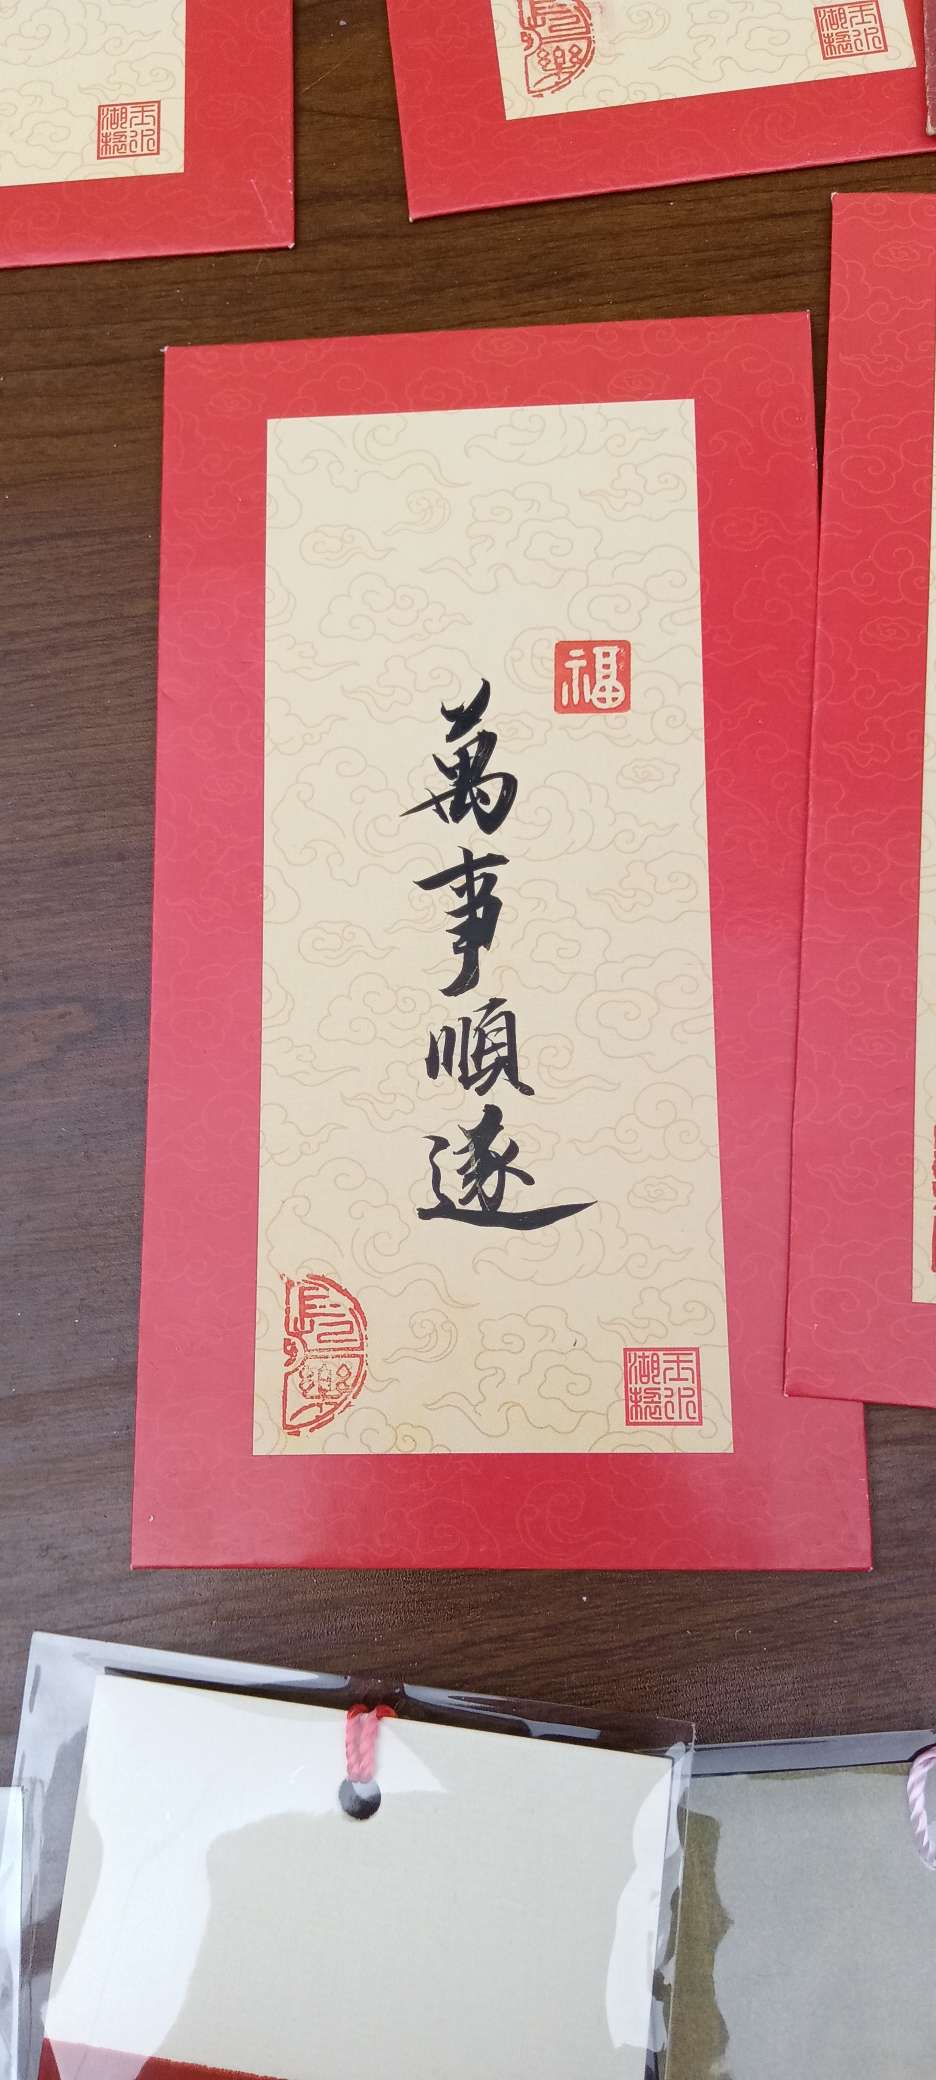 福
萬事順遂
長樂